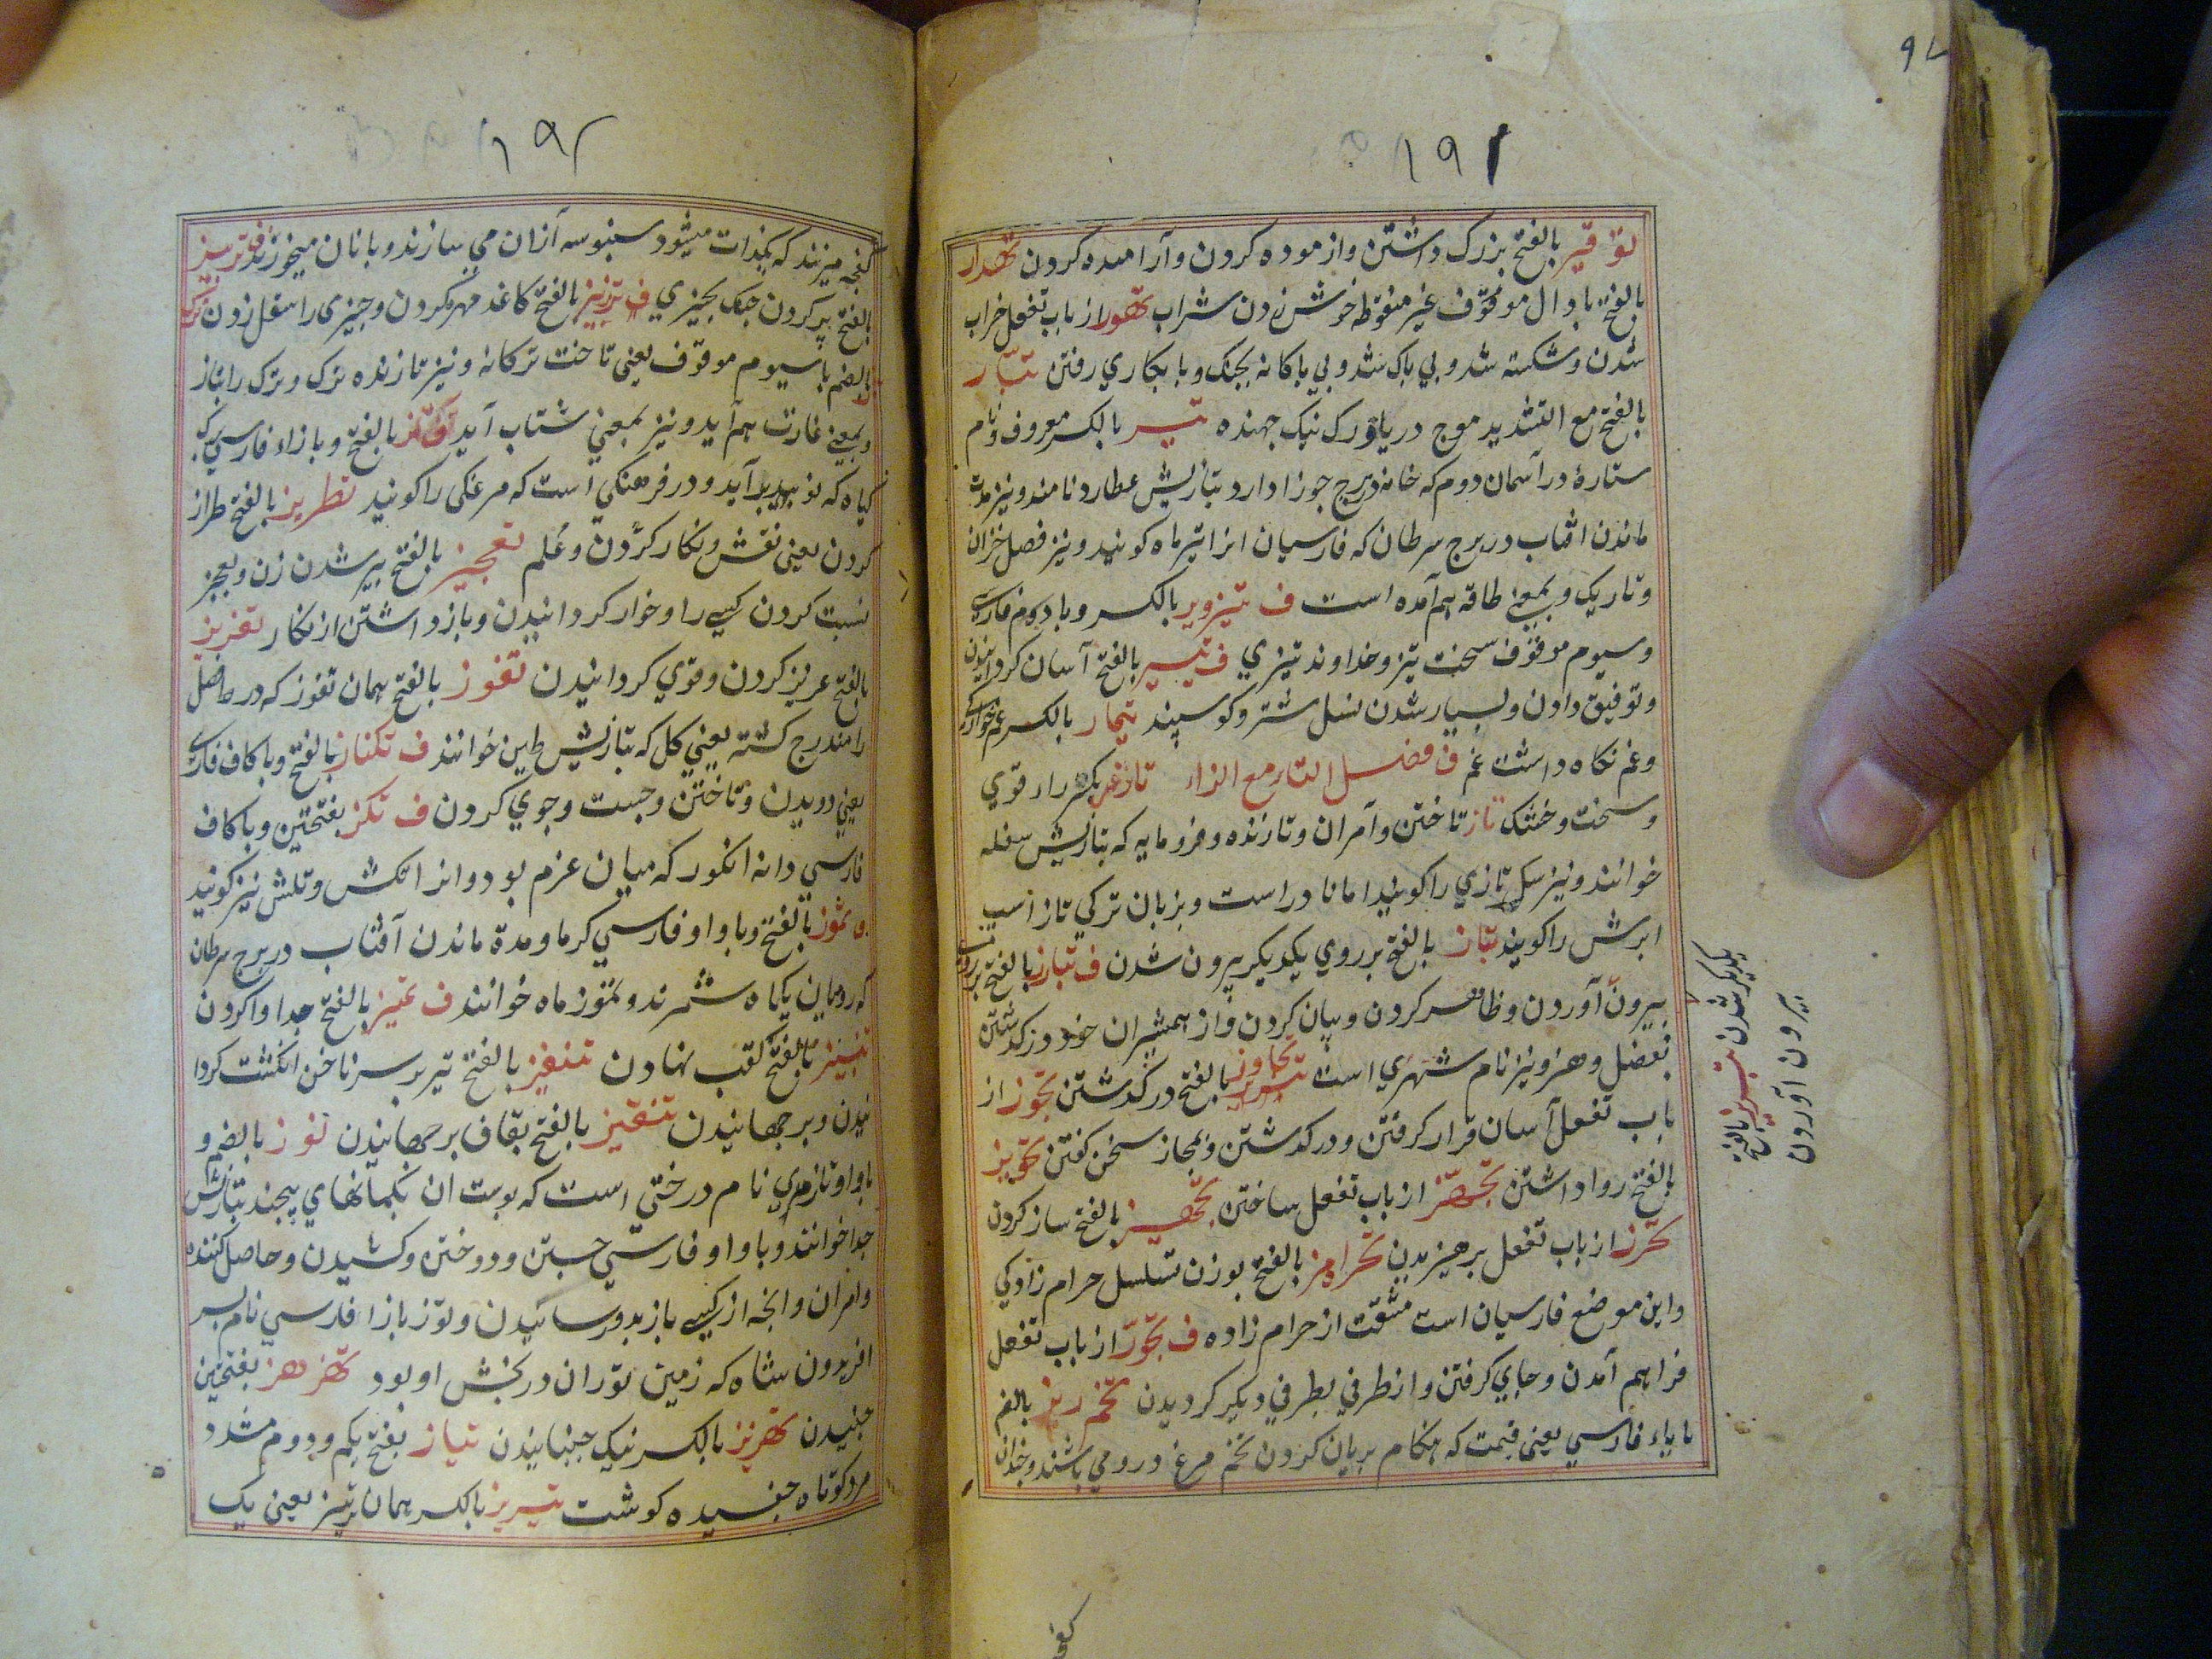 ۱۹۱
توقیر بالفتح بزرک داشتن وازموده کردن وآرامیده کردن تهدار
بالفتح با دال موقوف غیر منقوطه خوش زدن شراب تهور از باب تفعل خراب
شدن وشکسته شد وبی باک شد وبی باکانه بجنک وبا بکاری رفتن تیّار
بالفتح مع التشدید موج دریا ورک نیک جهنده تیر بالکسر معروف ونام
ستارهٔ در آسمان دوم که خانه در برج جوزا دارد بتازیش عطارد نامند ونیز مدت
ماندن افتاب در برج سرطان که فارسیان انرا تیر ماه کویند ونیز فصل خزان
وتاریک وبمعنی طاقه هم آمده است ف تیزویر بالکسر وبا دوم فارسی
وسیوم موقوف سخت تیز وخداوند تیزی ف تیسیر بالفتح آسان کردانیدن
وتوفیق دادن وبسیار شدن نسل شتر وکوسپند تیمار بالکسر غم خوارکی
وغم نکاه داشت غم ف فصل التاء مع الزاء تاز بکسر راء قوی
وسخت وخشک تاز تاختن وآمران وتازنده وفرومایه که بتازیش سفله
خوانند ونیز سکی تازی را کویند امانا در است وبزبان ترکی تاز اسپ
ابرش را کویند تباز بالفتح بر روی یکدیکر بیرون شدن ف تبارز بالفتح بر روی
بیرون آوردن وظاهر کردن وبیان کردن واز همشیران خود در کذشتن
بفضل وهنر ونیز نام شهری است تجاوز بالفتح در کذشتن تجوّز از
باب تفعل آسان قرار کرفتن ودر کذشتن وبمجاز سخن کفتن تجویز
بالفتح روا داشتن تجهّز از باب تفعل ساختن تجهیز بالفتح ساز کردن
تحرّز از باب تفعل پرهیزیدن تحرامز بالفتح بوزن تسلسل حرام زادکی
واین موضع فارسیان است مشقت از حرام زاده ف تحوّز از باب تفعل
فراهم آمدن وجای کرفتن واز طرفی بطرفی دیکر کردیدن تخم ریز بالضم
با یاء فارسی یعنی قیمت که هنکام بریان کردن تخم مرغ درو می باشند وخدان
یکدیکر شدن تبریز بالفتح
بیرون آوردن
۱۹۲
کفجه میزنند که بکذات میشود سنبوسه آزان می سازند وبا نان میخورند ف تربیز
بالفتح پر کردن جنک بچیزی ف ترزیز بالفتح کاغذ مهره کردن وچیزی را سفل زدن
بالضم با سیوم موقوف یعنی تاخت ترکانه ونیز تازنده ترک وترک را بتاز
وبمعنی غارت هم آید ونیز بمعنی شتاب آید بالفتح وبا زاء فارسی
کیاه که نو بر آید ودر فرهنکی است که مرغکی را کویند تطریز بالفتح طراز
کردن یعنی نقش ونکار کردن وعلم تعجیز بالفتح پیر شدن زن وبعجز
نسبت کردن کسی را وخوار کردانیدن وباز داشتن از نکار تعزیز
بالفتح عزیز کردن وقوی کردانیدن تغوز بالفتح همان تفوز که در فصل
را مندرج کشته یعنی کل که بتازیش طین خوانند ف تکتاز بالفتح وبا کاف فارسی
یعنی دویدن وتاختن وجست وجوی کردن ف تکز بفتحتین وبا کاف
فارسی دانه انکور که میان غژم بود وانرا تکش وتلش نیز کویند
ف تموز بالفتح وبا واو فارسی کرما ومدة ماندن آفتاب در برج سرطان
که رومیان یکماه شمرند وتموز ماه خوانند ف تمیز بالفتح جدا وا کردن
تنبیز بالفتح لقب نهادن تنفیز بالفتح تیر بر سر ناخن انکشت کردا
نیدن وبرجهانیدن تنقیز بالفتح بقاف برجهانیدن توز بالضم و
با واو تازی نام درختی است که پوست ان بکمانهای پیچند بتازیش
جدا خوانند وبا واو فارسی جستن ودوختن وکشیدن وحاصل کننده
وامران وانچه از کسی باز بدو رسانیدن وتوز با زا فارسی نام پسر
افریدون شاه که زمین توران در بخش او بود تهزهز بفتحتین
جنبیدن تهزیز بالکسر نیک جنبانیدن تیاز بفتح یکم ودوم مشدد
مرد کوتاه جفسیده کوشت تیریز بالکسر همان تریز یعنی یک